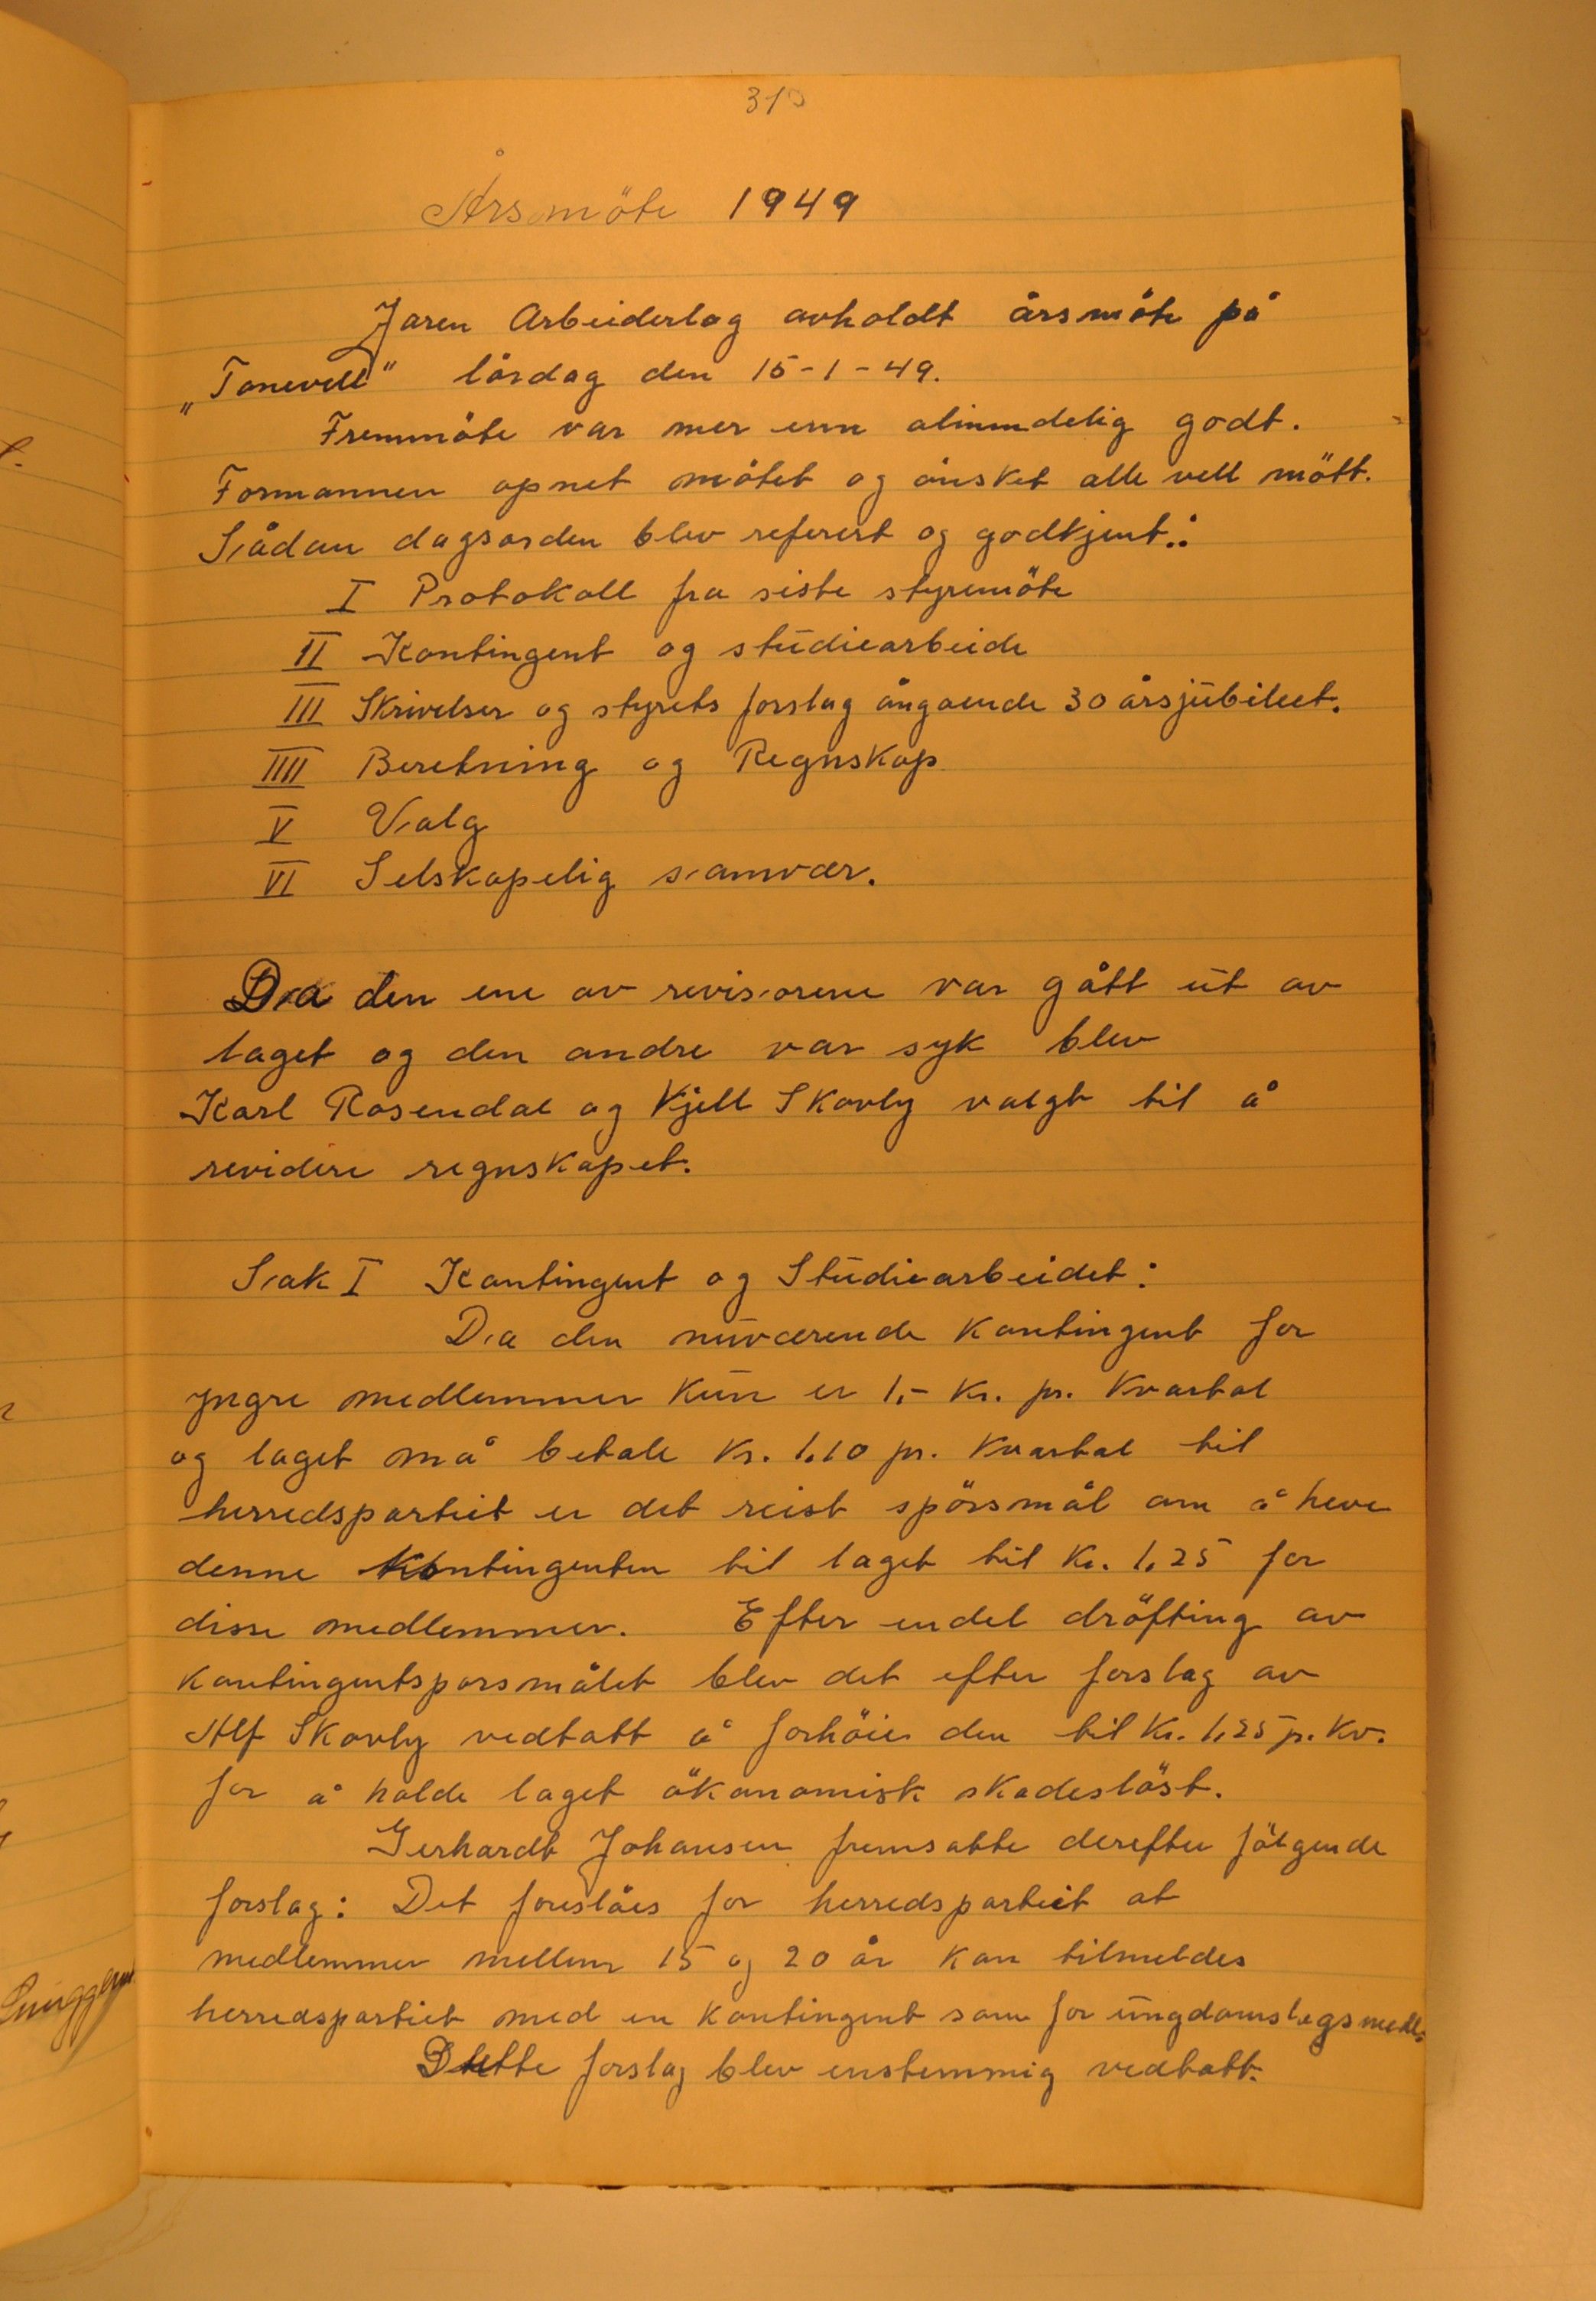 Årsmöte 1949
Jaren Arbeiderlag avholdt årsmöte på
„Tonevell" lördag den 15-1-49.
Fremmöte var mer enn alminndelig godt.
Formannen åpnet mötet og önsket alle vell mött.
Sådan dagsorden blev referert og godkjent:
I Protokoll fra siste styremöte
II Kontingent og studiearbeide
III Skrivelser og styrets forslag ångaende 30 årsjubileet.
IIII Beretning og Regnskap
V Valg
VI Selskapelig samvær.
Da den ene av revisorene var gått ut av
laget og den andre var syk blev
Karl Rosendal og Kjell Skovly valgt til å
revidere regnskapet.
Sak I Kontingent og Studiearbeidet:
Da den nuværende kontingent for
yngre medlemmer kun er 1,- kr. pr. kvartal
og laget må betale kr. 1.10 pr. kvartal til
herredspartiet er det reist spörsmål om å heve
denne kontingenten til laget til kr. 1,25 for
disse medlemmer. Efter endel dröfting av
kontingentsporsmålet blev det efter forslag av
Alf Skovly vedtatt å forhöie den til kr. 1,25 p. kv.
for å holde laget ökonomisk skadeslöst.
Gerhardt Johansen fremsatte derefter fölgende
forslag: Det foreslåes for herredspartiet at
medlemmer mellem 15 og 20 år kan tilmeldes
herredspartiet med en kontingent som for ungdomslagsmedl.
Dette forslag blev enstemmig vedtatt.